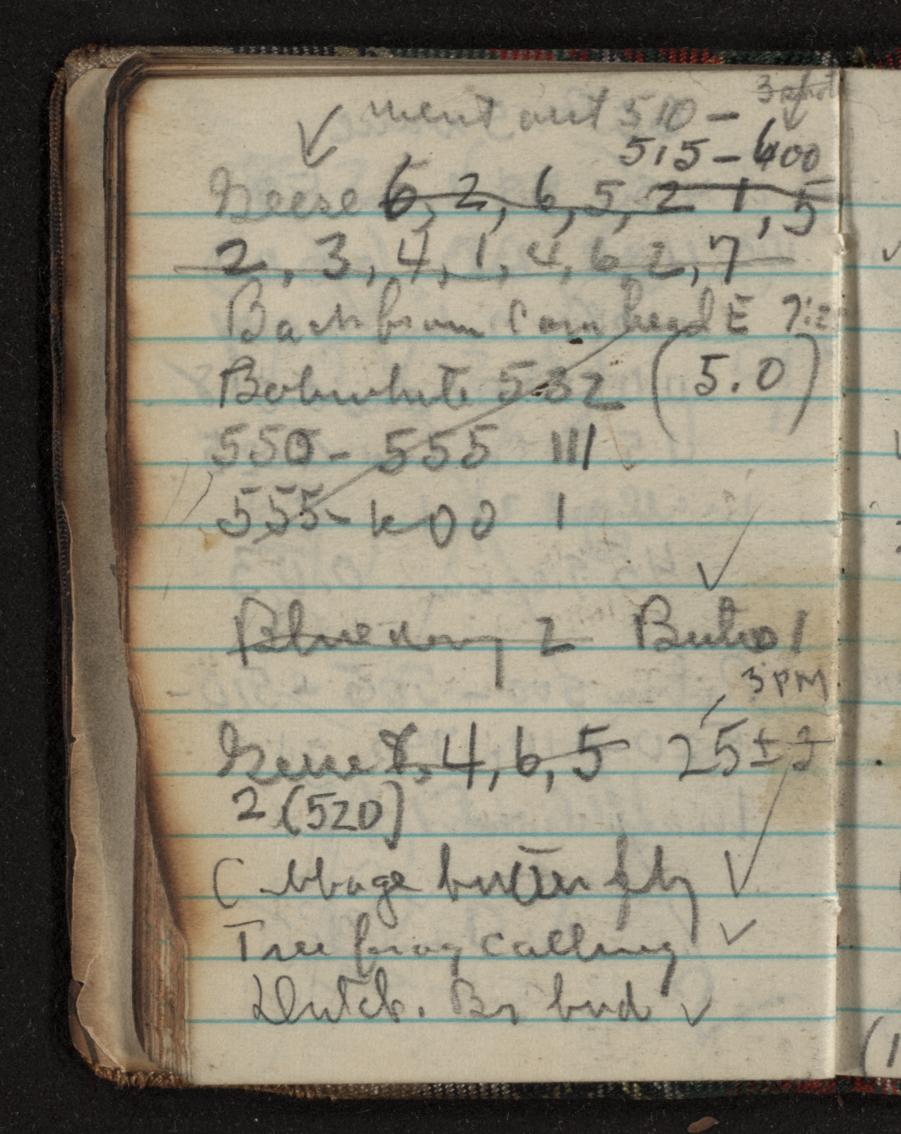 3 shot
went out 510 -
515 - 600
Geese 6, 2, 6, 5, 2 1, 5
2, 3, 4, 1, 4, 6, 2, 7
Back from Corn E
Bobwhite 532 (5.0)
550 - 555 III
555 - 600 I
2 Buteo 1
3 PM
Geese 7, 4, 6, 5 25 ±
2 (520)
Cabbage butterfly
Tree frog calling
Dutch. Br bud